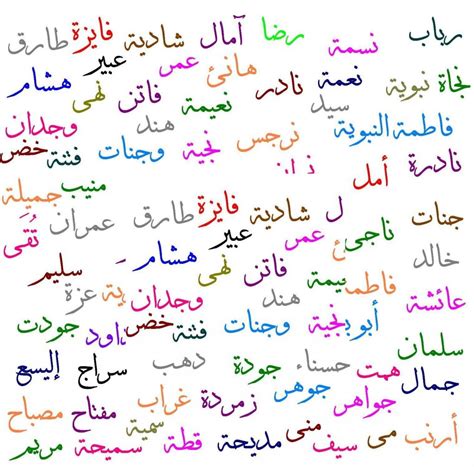 رباب نسمة رضا آمال شادية فايزة طارق
عبير
نجاة نبوية نعمة نادر هانئ عمر هشام
سيد نعيمة فاتن نهى
فاطمة النبوية نرجس هند وجدان
نادرة نجية وجنات فتنة خضر
أمل منيب جميلة
جنات ل شادية فايزة طارق عمران تُقَى
ناجي عمر عبير
خالد هشام سليم
فاطمة يمة فاتن نهى ية عزة
عائشة هند وجدان
أبو نجية وجنات فتنة خضر داود جودت
سلمان
همت حسناء جودة دهب سراج إليسع
جمال جواهر جوهر زمردة غراب مفتاح مصباح
أرنب مي سيف منى مديحة قطة سمية سميحة مريم